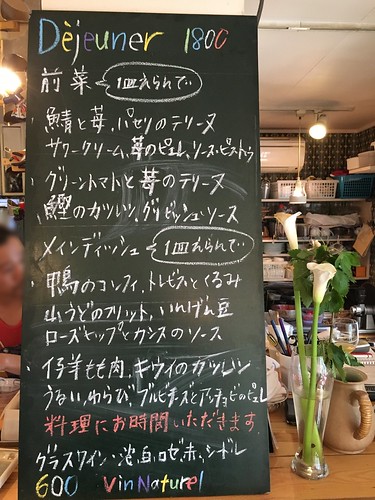 Déjeuner 1800
前菜 1皿えらんで‥
・鯖と苺、パセリのテリーヌ
サワークリーム、苺のピュレ、ソース・ピストゥ
・グリーントマトと苺のテリーヌ
・鰹のカツレツ、グリビッシュソース
メインディッシュ 1皿えらんで‥
・鴨のコンフィ、トレビスとくるみ
山うどのフリット、いんげん豆
ローズヒップとカシスのソース
・仔羊もも肉、キウイのカツレツ
うるい、わらび、ブルーチーズとアンチョビのピュレ
料理にお時間いただきます
グラスワイン・泡、白、ロゼ、赤、シードル
600 Vin Naturel